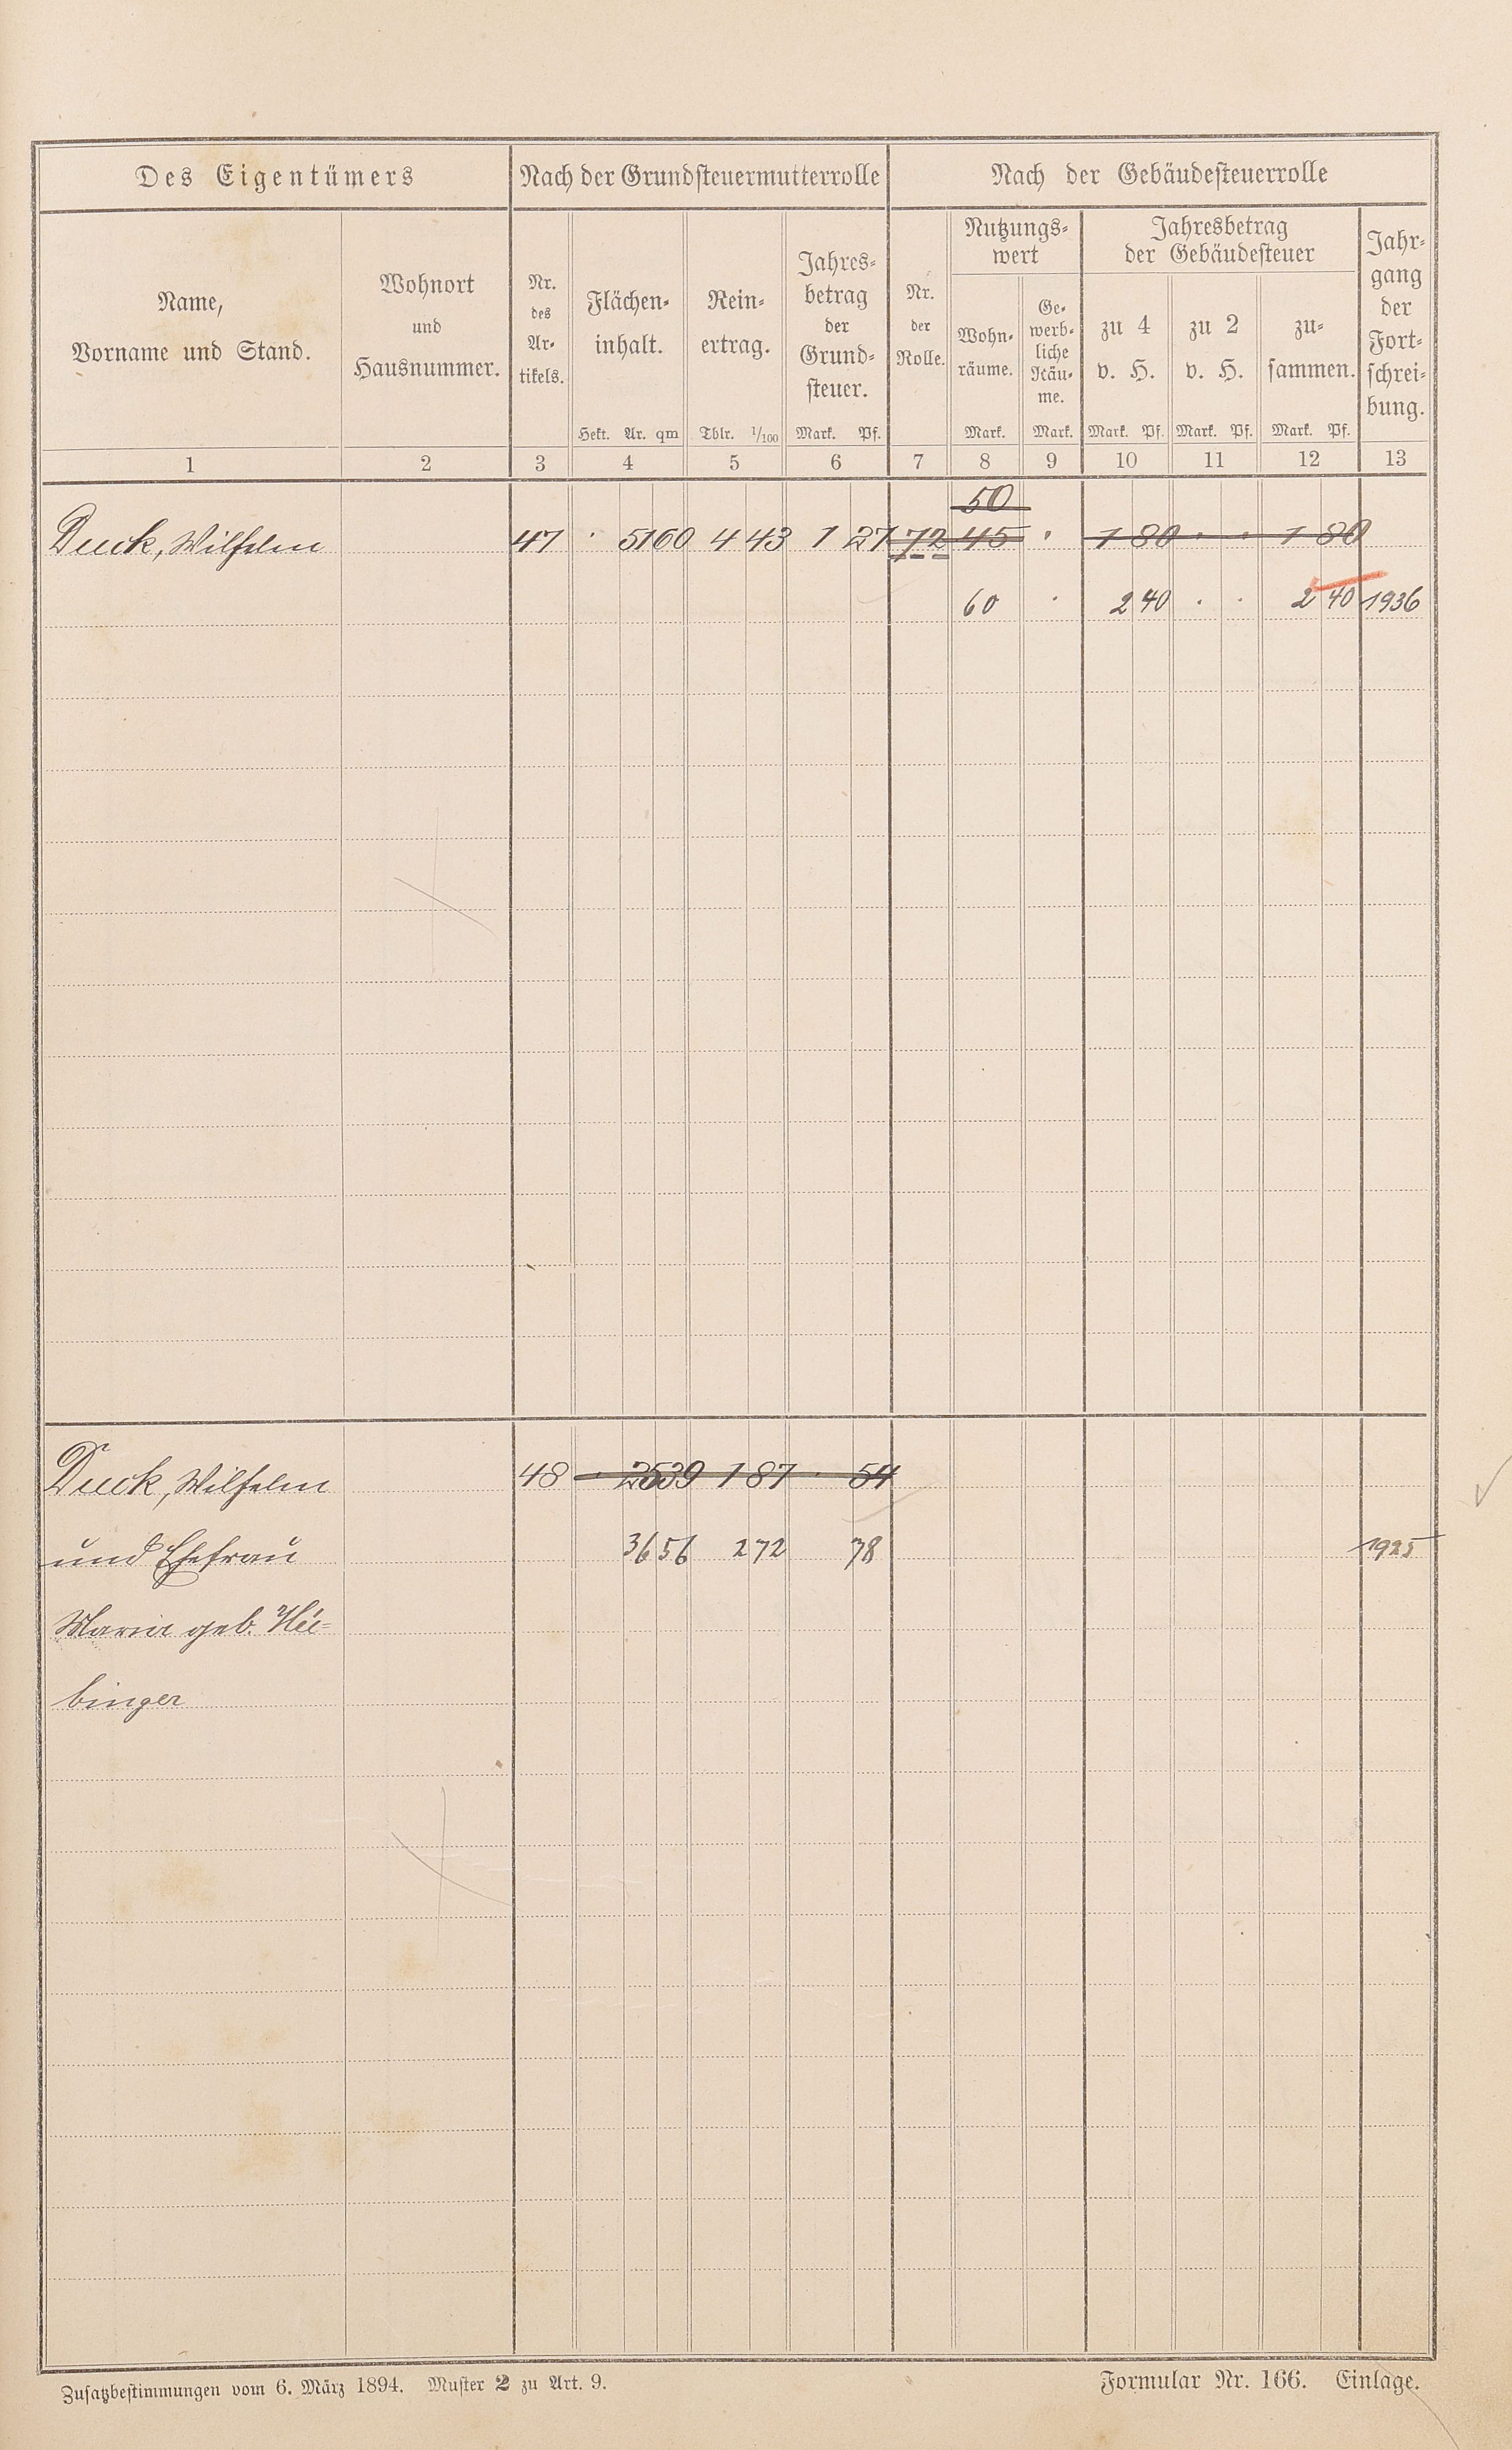 Des Eigentümers Nach der Grundsteuermutterrolle Nach der Gebäudesteuerrolle
Name,
Vorname und Stand.
Wohnort
und
Hausnummer.
Nr.
des
Ar-
tikels.
Flächen-
inhalt.
Hekt. Ar. qm
Rein-
ertrag.
Thlr. 1/100
Jahres-
betrag
der
Grund-
steuer.
Mark. Pf.
Nr.
der
Rolle.
Nutzungs-
wert
Wohn-
räume.
Mark.
Ge-
werb-
liche
Räu-
me.
Mark.
Jahresbetrag
der Gebäudesteuer
zu 4
v. H.
Mark. Pf.
zu 2
v. H.
Mark. Pf.
zu-
sammen.
Mark. Pf.
Jahr-
gang
der
Fort-
schrei-
bung.
1 2 3 4 5 6 7 8 9 10 11 12 13
50
Duck, Wilhelm 47 · 51 60 4 43 1 27 72 45 · 1 80 · · 1 80
60 · 2 40 · · 2 40 1936
Duck, Wilhelm 48 · 25 39 1 87 · 54
und Ehefrau 36 56 2 72 78 1925
Maria geb. Hü-
binger
Zusatzbestimmungen vom 6. März 1894. Muster 2 zu Art. 9. Formular Nr. 166. Einlage.